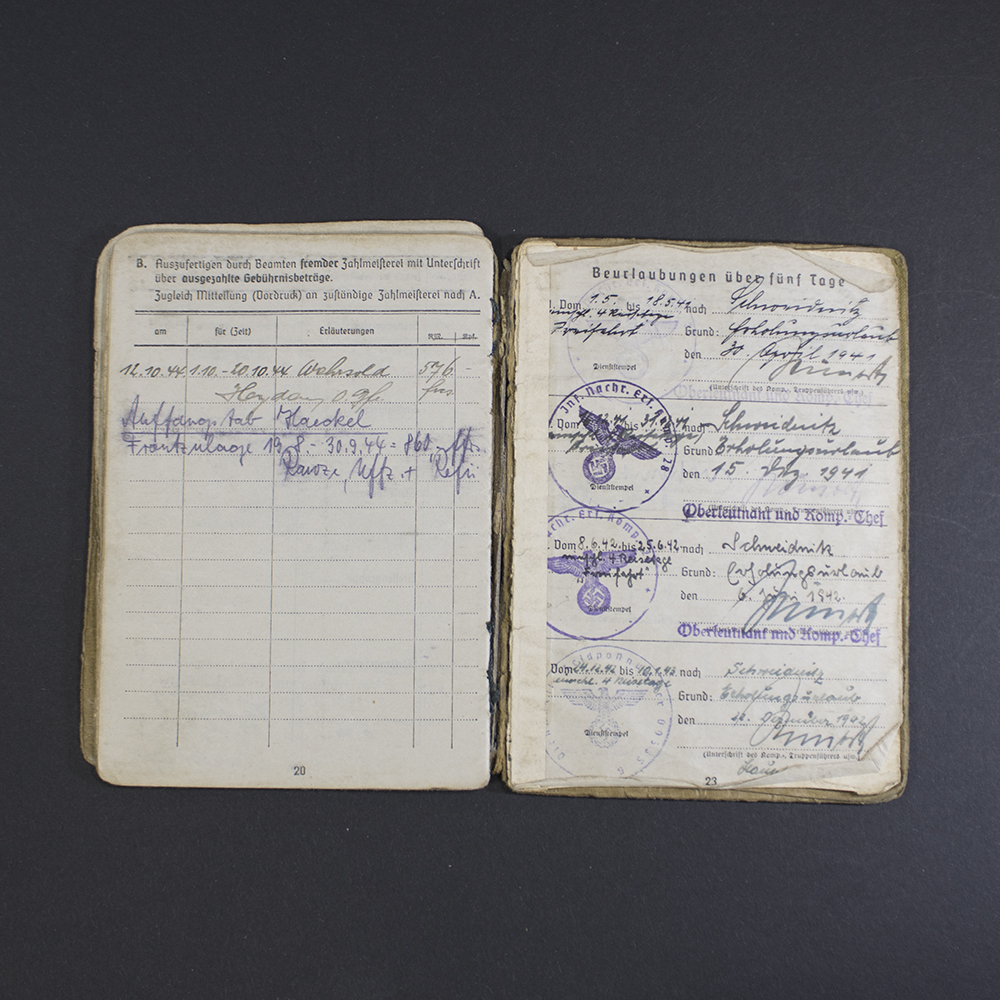 B. Auszufertigen durch Beamten fremder Zahlmeisterei mit Unterschrift
über ausgezahlte Gebührnisbeträge.
Zugleich Mitteilung (Vordruck) an zuständige Zahlmeisterei nach A.
am für (Zeit) Erläuterungen RM. Rpf.
12.10.44 1.10.-20.10.44 Wehrsold 576.-
frs
Auffangstab Haeckel
Frontzulage 19.8.-30.9.44 = 860.- ffrs.
Uffz. +
20
Beurlaubungen über fünf Tage
1. Vom 1.5. bis 18.5.41 nach Schweidnitz
einschl. 4 Reisetage
Freifahrt Grund: Erholungsurlaub
den 30. April 1941
Dienststempel
(Unterschrift des Komp., Truppenführers usw.)
Inf. Nachr. Ers. Komp. 28
Vom bis nach Schweidnitz
Grund Erholungsurlaub
den 15. Dez. 1941
Dienststempel
Oberleutnant und Komp.-Chef
Nachr. Ers. Komp.
Vom 8.6.42 bis 25.6.42 nach Schweidnitz
einschl. 4 Reisetage
"Freifahrt" Grund: Erholungsurlaub
den 6. Juni 1942.
Dienststempel
Oberleutnant und Komp.-Chef
Vom 24.12.42 bis 10.1.43 nach Schweidnitz
einschl. 4 Reisetage
Grund: Erholungsurlaub
den Dezember 1942
Dienststempel
(Unterschrift des Komp., Truppenführers usw.)
23